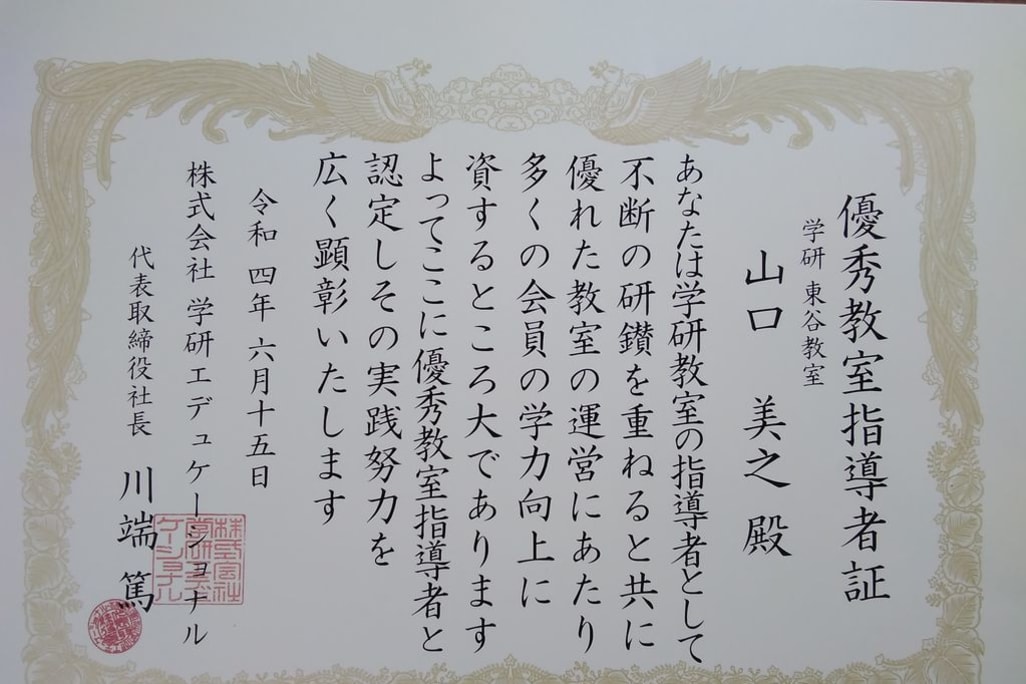 優秀教室指導者証
学研 東谷教室
山口 美之 殿
あなたは学研教室の指導者として
不断の研鑚を重ねると共に
優れた教室の運営にあたり
多くの会員の学力向上に
資するところ大であります
よってここに優秀教室指導者と
認定しその実践努力を
広く顕彰いたします
令和 四年 六月 十五日
株式会社 学研エデュケーショナル
代表取締役社長 川端 篤